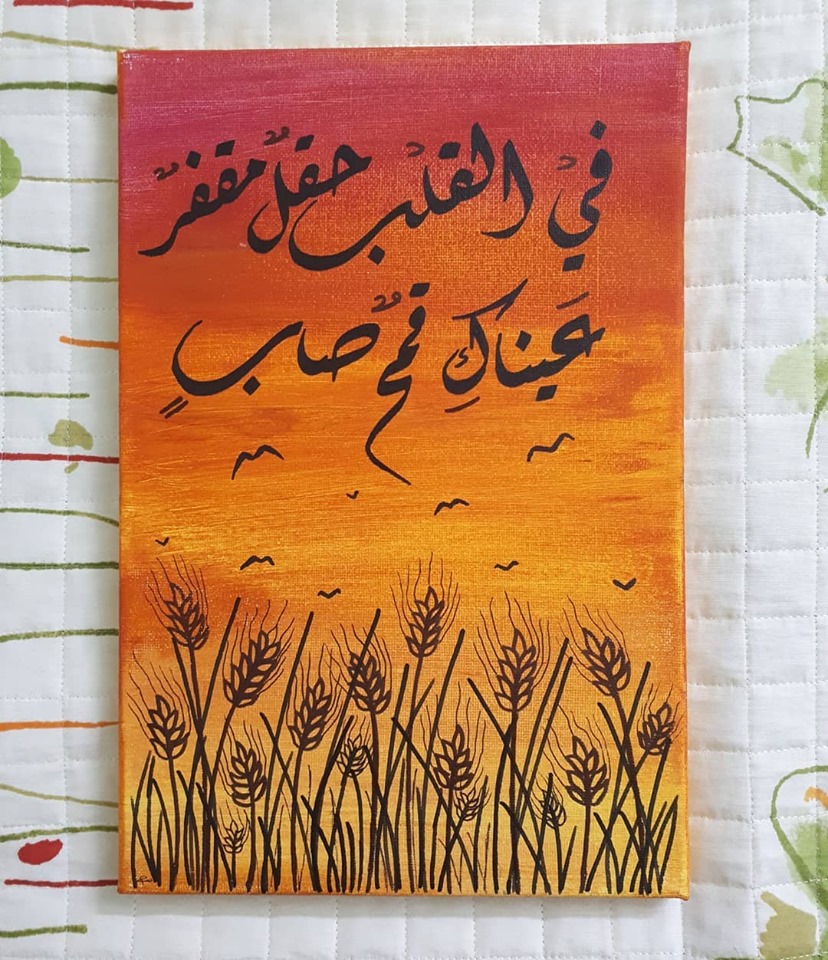 فيْ القلْبِ حقلٌ مقفرٌ
عَيناكِ قمحٌ صابٍ